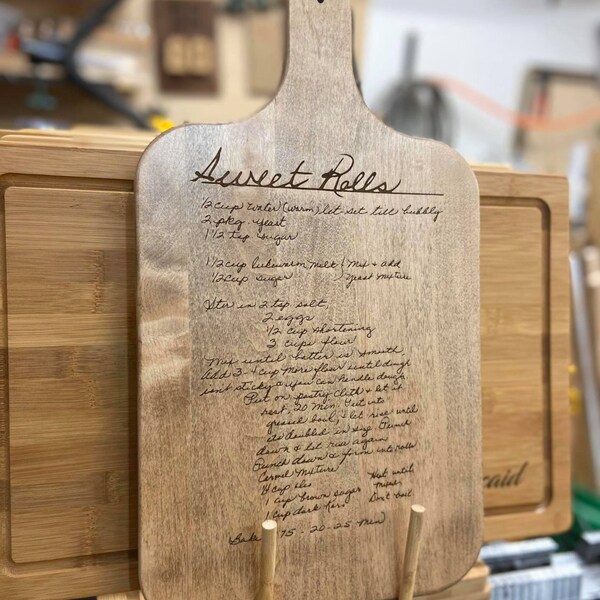 Sweet Rolls
1/2 cup water (warm) let set till bubbly
2 pkg. yeast
1 1/2 tsp sugar
1 1/2 cup lukewarm milk ( Mix & add
1/2 cup sugar ) yeast mixture
Stir in 2 tsp salt,
2 eggs
1/2 cup shortening
3 cups flour
Mix until batter is smooth
Add 3-4 cup more flour until dough
isn't sticky & you can handle dough.
Put on pastry cloth & let it
rest, 20 min. Put into
greased bowl, & let rise until
its doubled in size. Punch
down & let rise again
Punch down & form into rolls
Carmel Mixture
1/4 cup oleo Heat until
1 cup brown sugar mixes
1 cup dark Karo Don't boil
Bake 75 - 20-25 Min